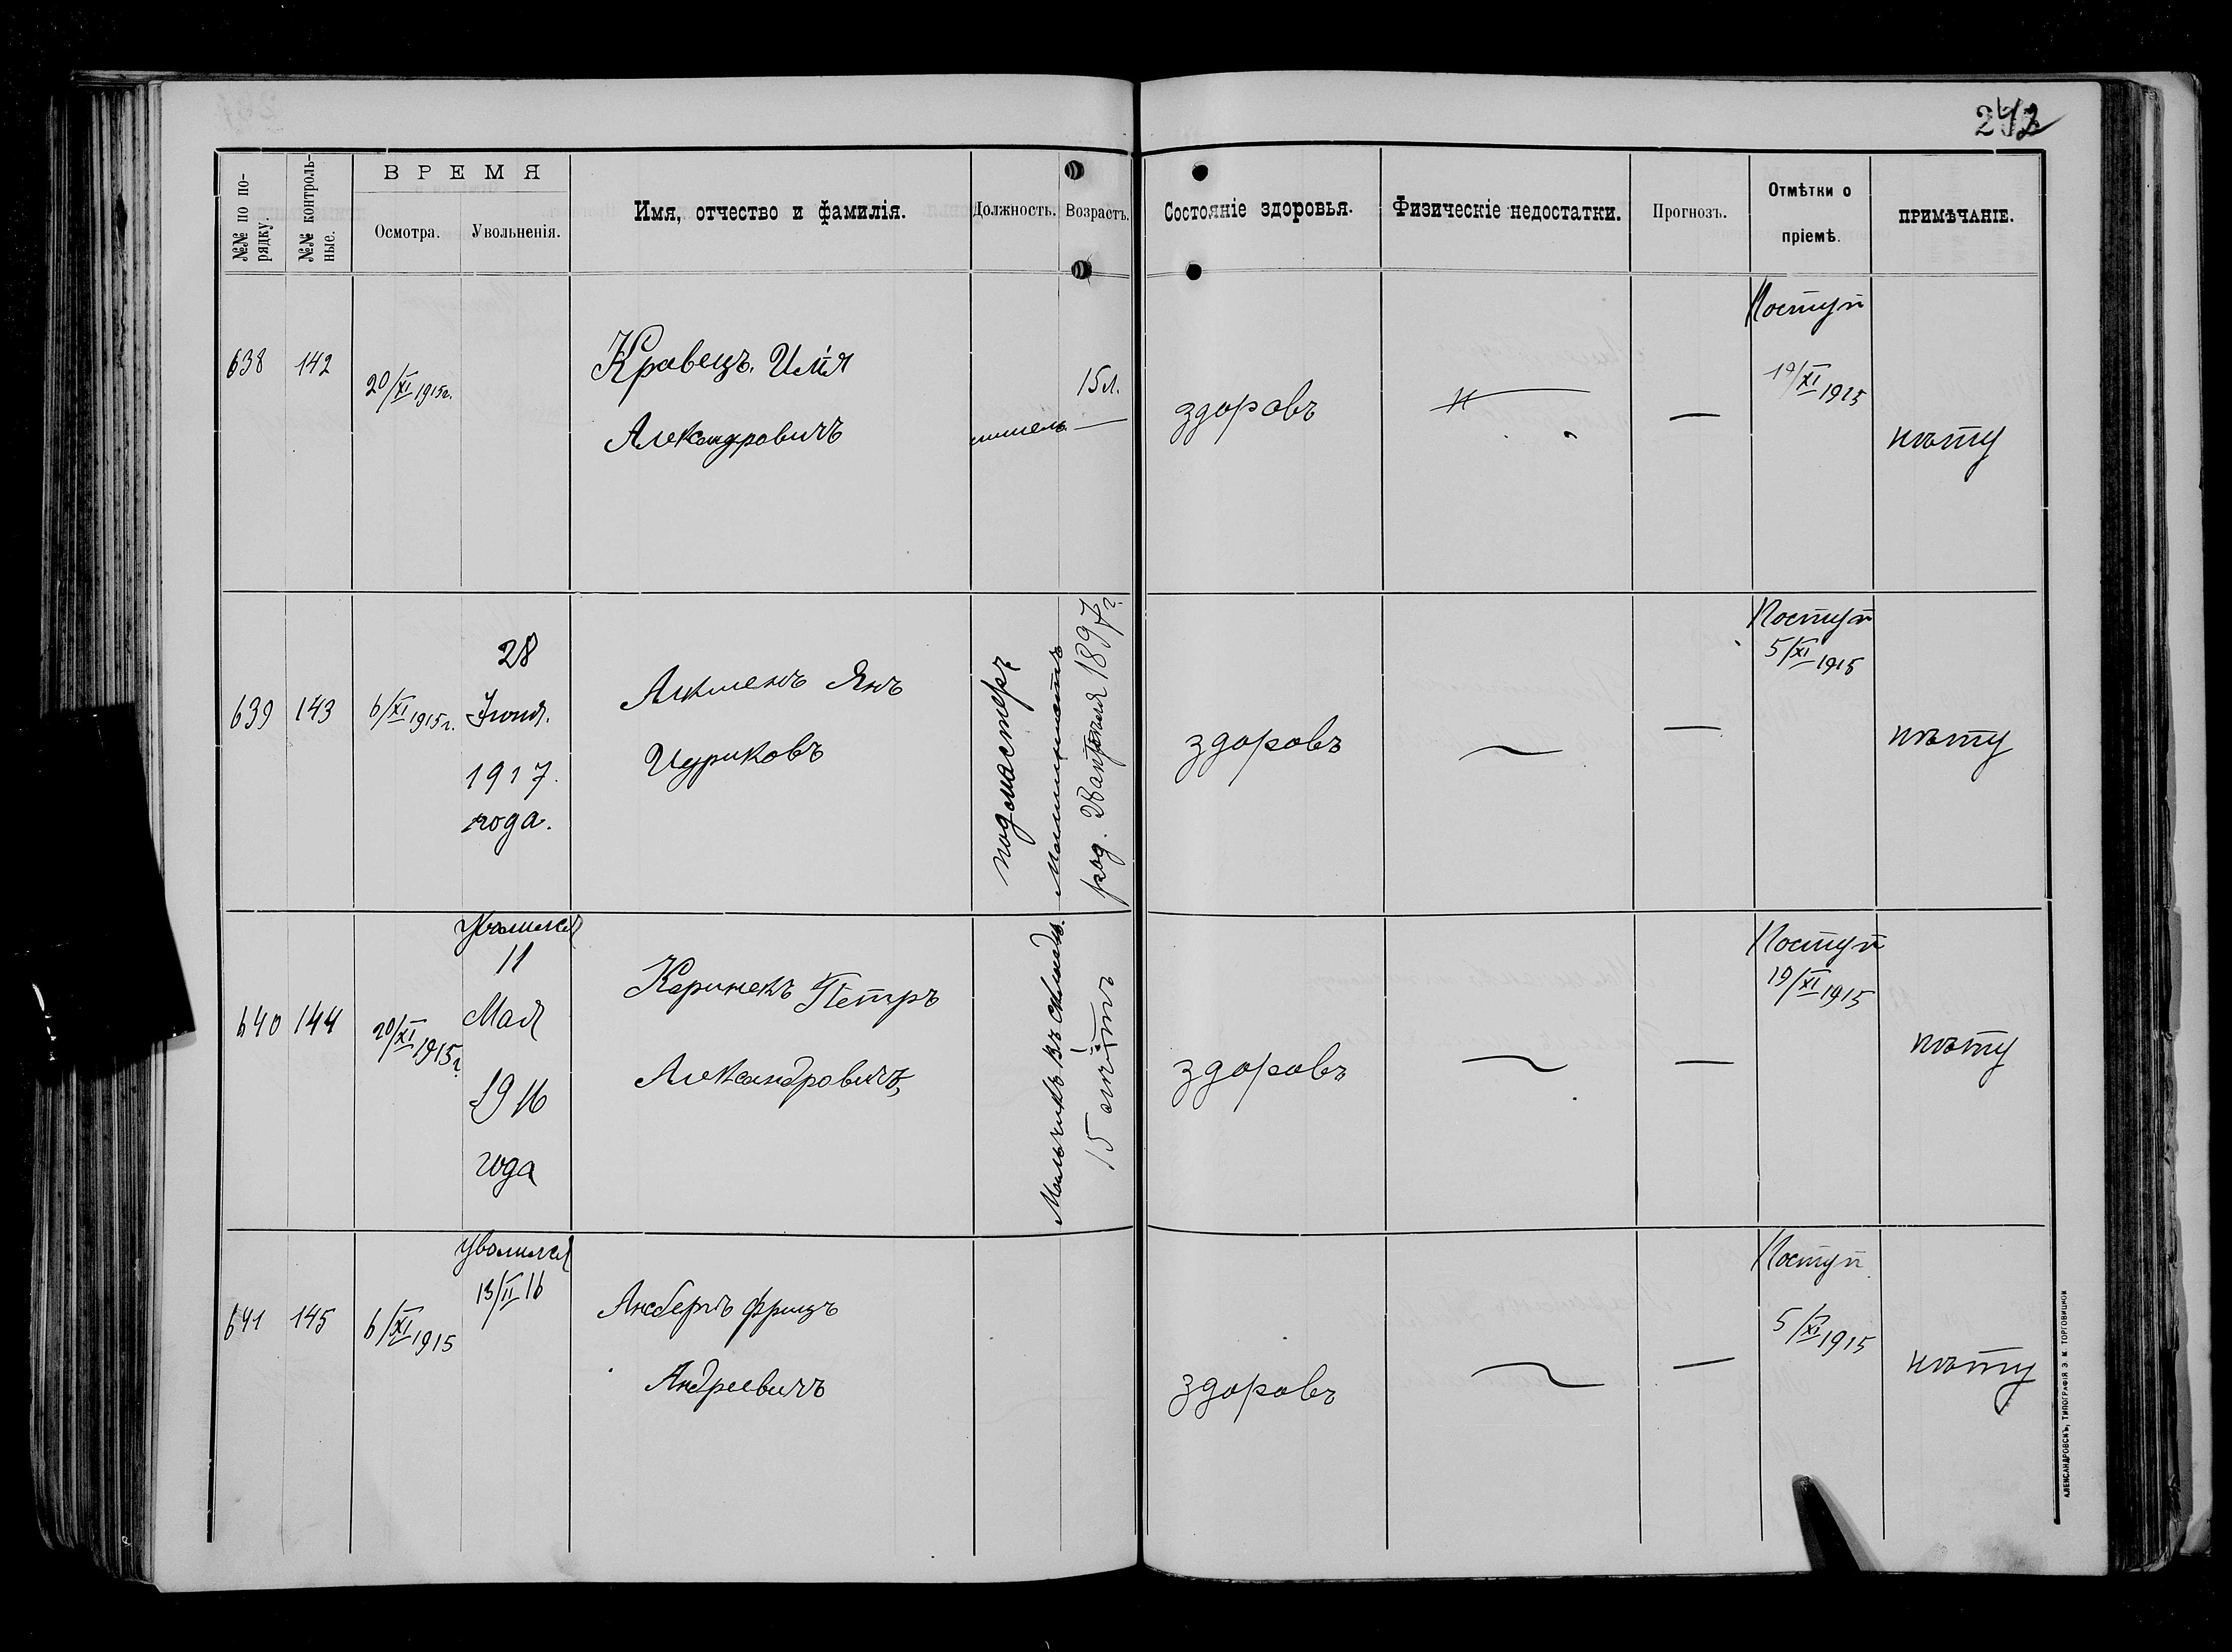 242
ВРЕМЯ
№№ по по-
рядку.
№№ контроль-
ные.
Осмотра.
Увольненія.
Имя, отчество и фамилія.
Должность.
Возрастъ.
Состояніе здоровья.
Физическіе недостатки.
Прогнозъ.
Отмѣтки о
пріемѣ.
ПРИМѢЧАНІЕ.
638 142
20/XI 1915г.
Кравецъ. Илія
Александровичъ
15 л.
здоровъ
—
Поступ
19/XI 1915
нѣту
639 143
6/XI 1915г.
28
Іюня.
1917.
года.
Акменъ Янъ
Индриковъ
подмастеръ
род. 28 апрѣля 1897 г.
здоровъ
—
Поступ
5/XI 1915
нѣту
640 144
20/XI 1915г.
Уволился
11
Мая
1916
года
Каринекъ Петръ
Александровичъ
Мальчикъ въ складѣ.
15 лѣтъ
здоровъ
—
Поступ
19/XI 1915
нѣту
641 145
6/XI 1915
Уволился
13/II 16
Ансбергъ Фрицъ
Андреевичъ
здоровъ
—
Поступ
5/XI 1915
нѣту
АЛЕКСАНДРОВСКЪ, ТИПОГРАФІЯ Э. М. ТОРГОВИЦКОЙ